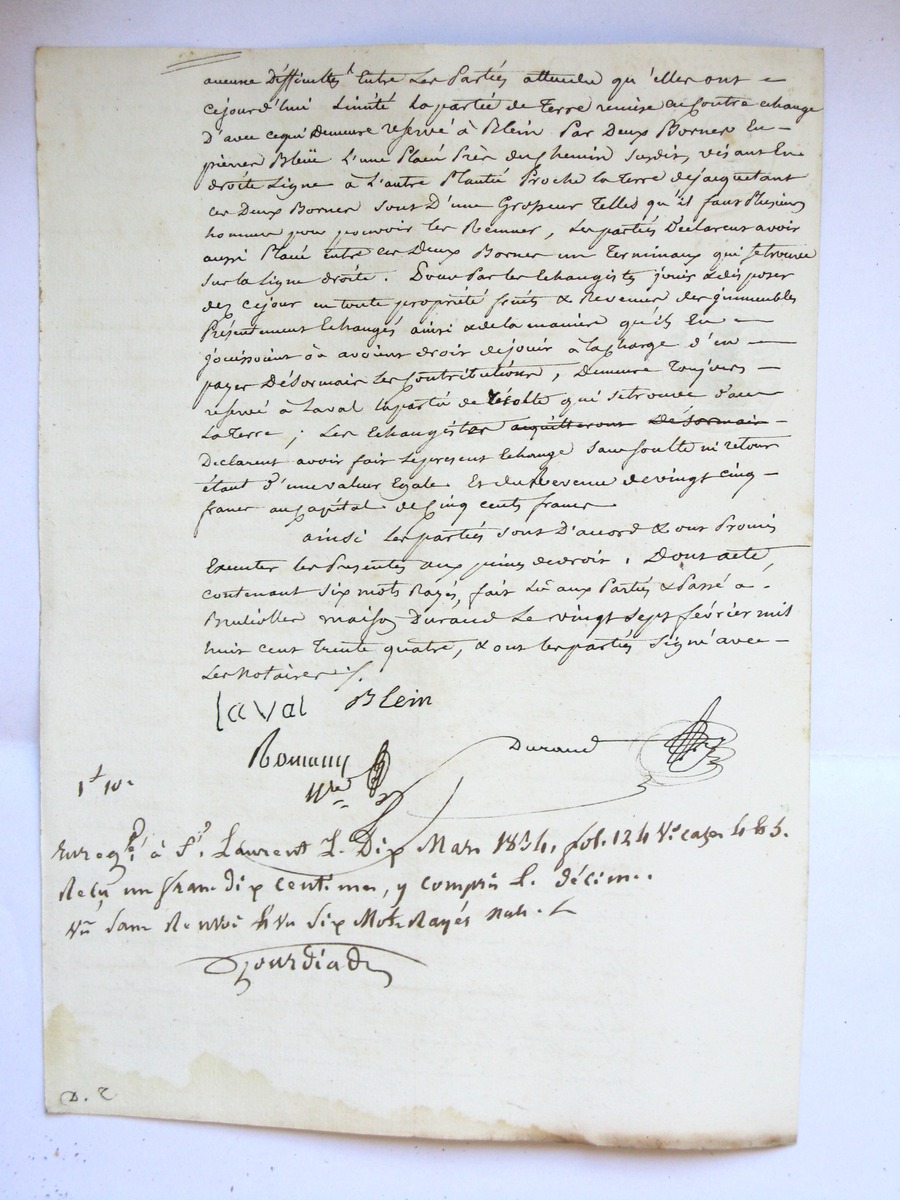 aucune Difficultés Entre Les Parties attendu qu'elles ont
cejourd'hui Limité La partie de Terre remise en Contre echange
D'avec cequi Demeure reservé à Blein Par Deux Bornes En
pierres Bleüe L'une Placé Près du chemin susdit, visant En
droite Ligne à L'autre Plantée Proche la Terre de jacquetant
ces Deux Bornes sont D'une Grosseur Telles qu'il faut Plusieurs
hommes pour pouvoir les Remuer, Les parties Déclarent avoir
aussi Placé Entre ces Deux Bornes un Terminaux qui setrouve
sur la Ligne droite. Pour Par les Echangistes jouir & disposer
dez cejour en toute propriété fruits & Revenus des jmmeubles
Présentement Echangés ainsi & de la maniere qu'ils En
jouissoient & avoient droit de jouir à la charge d'en
payer Désormais les Contributions, Demeure Toujours
reservé à Laval la partie de Récolte qui setrouve dans
La Terre; Les Echangistes acquitteront Désormais
Declarent avoir fait Lepresent Echange Sans Soulte ni retour
étant d'une valeur Egale Et du Revenu de vingt cinq
francs au Capital de Cinq cents francs
ainsi les parties sont D'accord & ont Promis
Executer les Presentes aux peines de droit, Dont acte
contenant Six mots Rayés, fait Lû aux Parties & Passé à
Brullioles maison Durand Le vingt sept fevrier mil
huit cent Trente quatre, & ont les parties Signé avec
Les Notaires ./.
Laval Blein
Romany Durand
Nre
1f 10c
Enregé. à St. Laurent L. Dix Mars 1834, fol. 124 Vo. cases 4 & 5.
Reçu un franc dix centimes, y compris le décime.
Vû Sans Renvoi & Vu Six Mots Rayés nuls.
D. 2